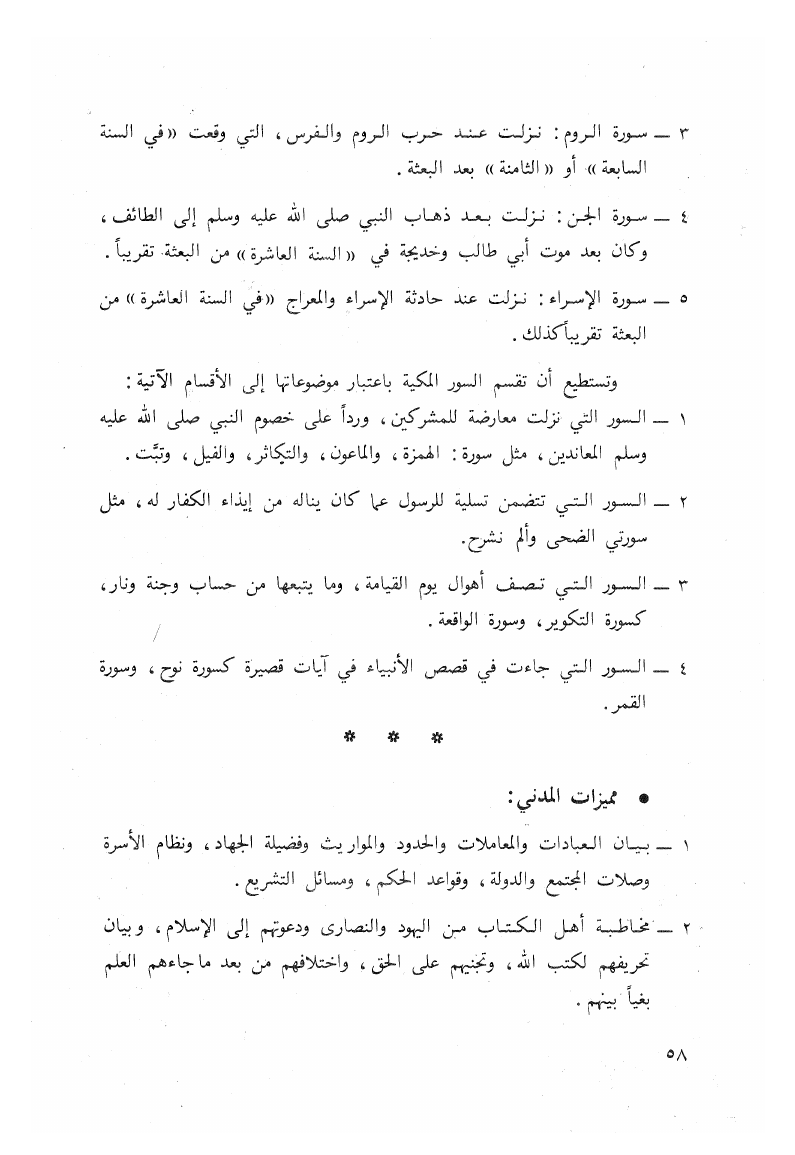 ٣ ـ سورة الروم : نزلت عند حرب الروم والفرس ، التي وقعت «في السنة
السابعة» أو «الثامنة» بعد البعثة .
٤ ـ سورة الجن : نزلت بعد ذهاب النبي صلى الله عليه وسلم إلى الطائف ،
وكان بعد موت أبي طالب وخديجة في «السنة العاشرة» من البعثة تقريباً .
٥ ـ سورة الإسراء : نزلت عند حادثة الإسراء والمعراج «في السنة العاشرة» من
البعثة تقريباً كذلك .
وتستطيع أن تقسم السور المكية باعتبار موضوعاتها إلى الأقسام الآتية :
١ ـ السور التي نزلت معارضة للمشركين ، ورداً على خصوم النبي صلى الله عليه
وسلم المعاندين ، مثل سورة : الهمزة ، والماعون ، والتكاثر ، والفيل ، وتبَّت .
٢ ـ السور التي تتضمن تسلية للرسول عما كان يناله من إيذاء الكفار له ، مثل
سورتي الضحى وألم نشرح .
٣ ـ السور التي تصف أهوال يوم القيامة ، وما يتبعها من حساب وجنة ونار ،
كسورة التكوير ، وسورة الواقعة .
٤ ـ السور التي جاءت في قصص الأنبياء في آيات قصيرة كسورة نوح ، وسورة
القمر .
* * *
● مميزات المدني :
١ ـ بيان العبادات والمعاملات والحدود والمواريث وفضيلة الجهاد ، ونظام الأسرة
وصلات المجتمع والدولة ، وقواعد الحكم ، ومسائل التشريع .
٢ ـ مخاطبة أهل الكتاب من اليهود والنصارى ودعوتهم إلى الإسلام ، وبيان
تحريفهم لكتب الله ، وتجنيهم على الحق ، واختلافهم من بعد ما جاءهم العلم
بغياً بينهم .
٥٨